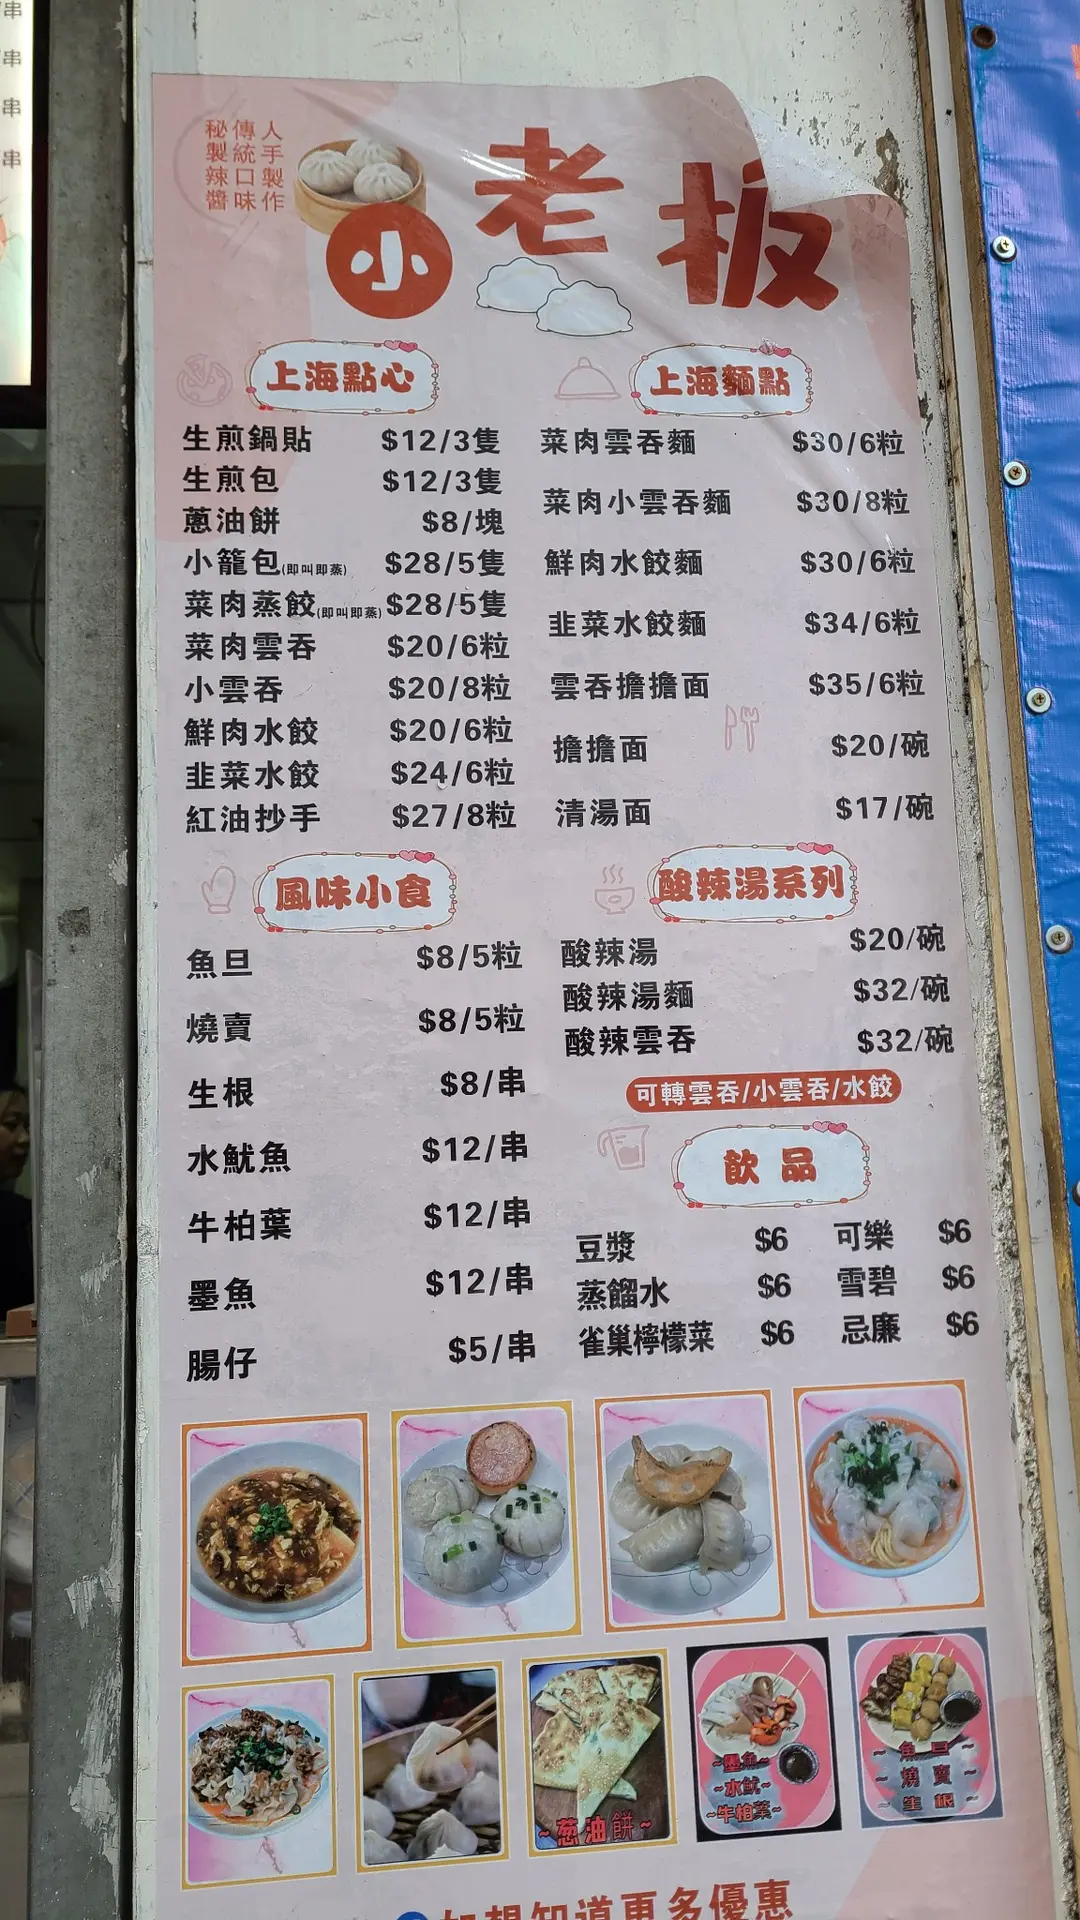 人手製作
傳統口味
秘製辣醬
小老板
上海點心
生煎鍋貼 $12/3隻
生煎包 $12/3隻
蔥油餅 $8/塊
小籠包(即叫即蒸) $28/5隻
菜肉蒸餃(即叫即蒸) $28/5隻
菜肉雲吞 $20/6粒
小雲吞 $20/8粒
鮮肉水餃 $20/6粒
韭菜水餃 $24/6粒
紅油抄手 $27/8粒
上海麵點
菜肉雲吞麵 $30/6粒
菜肉小雲吞麵 $30/8粒
鮮肉水餃麵 $30/6粒
韭菜水餃麵 $34/6粒
雲吞擔擔面 $35/6粒
擔擔面 $20/碗
清湯面 $17/碗
風味小食
魚旦 $8/5粒
燒賣 $8/5粒
生根 $8/串
水魷魚 $12/串
牛柏葉 $12/串
墨魚 $12/串
腸仔 $5/串
酸辣湯系列
酸辣湯 $20/碗
酸辣湯麵 $32/碗
酸辣雲吞 $32/碗
可轉雲吞/小雲吞/水餃
飲品
豆漿 $6 可樂 $6
蒸餾水 $6 雪碧 $6
雀巢檸檬菜 $6 忌廉 $6
~葱油餅~
~墨魚~
~水魷~
~牛柏葉~
~魚旦~
~燒賣~
~生根~
如想知道更多優惠
串
串
串
串